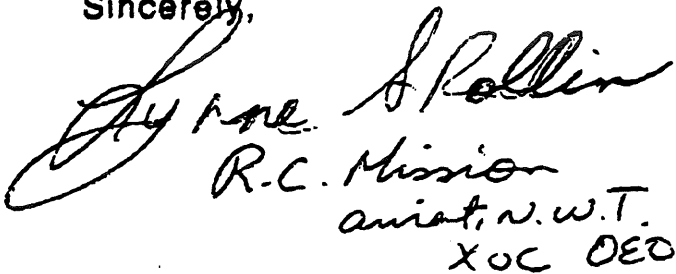 Sincerely,
Lynne S Rollin
R.C. Mission
arviat, N.W.T.
XOC OEO